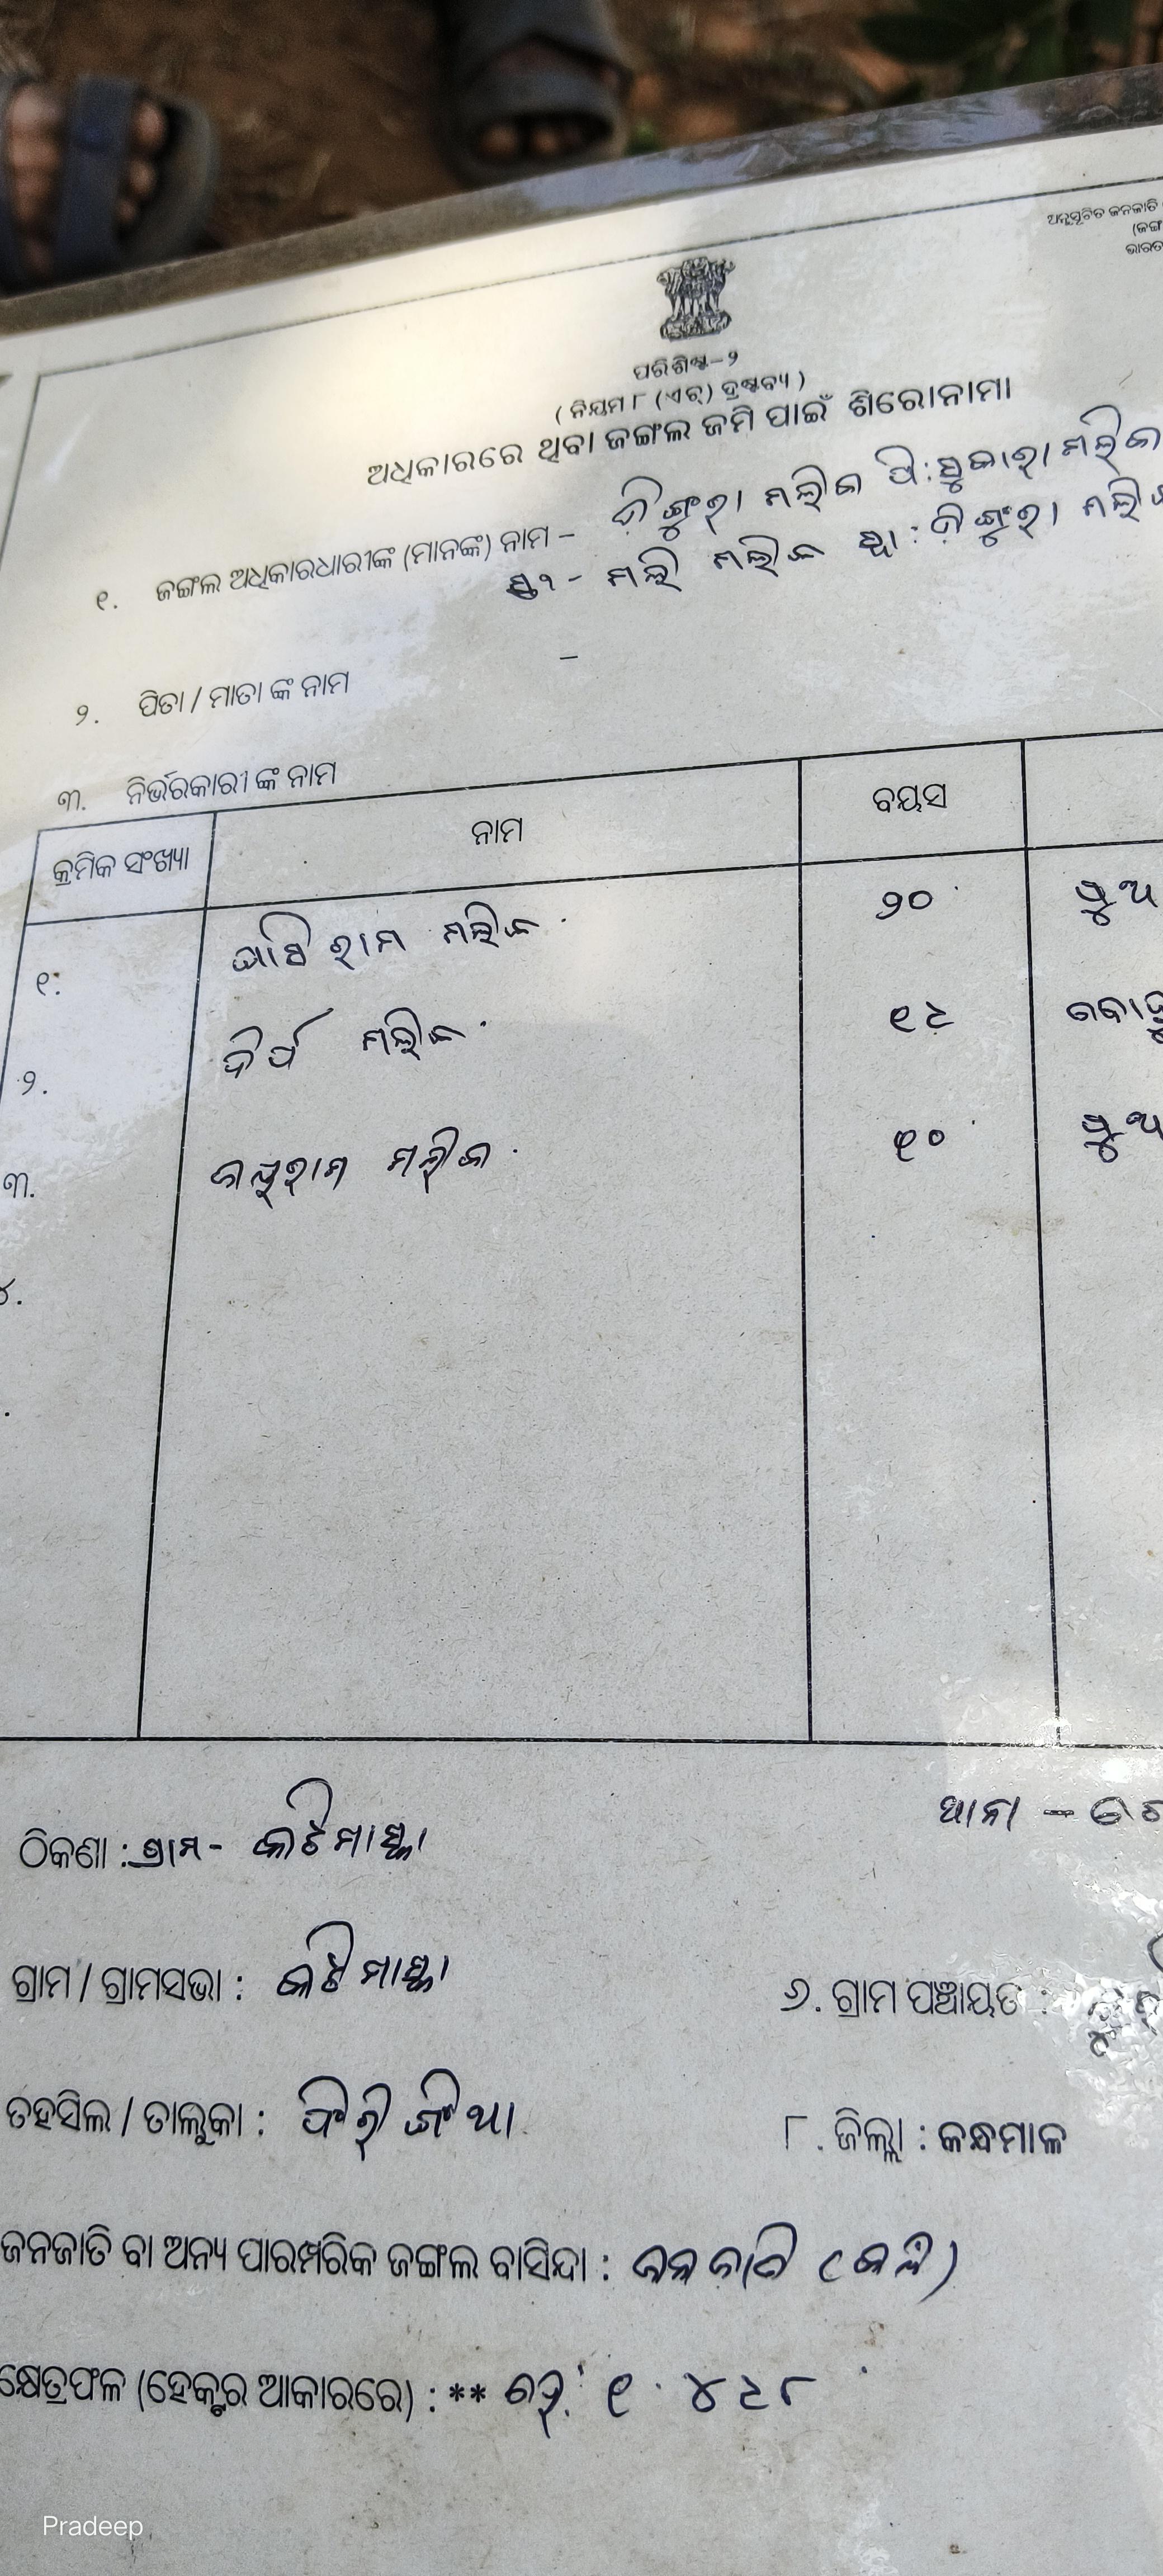 ଅନୁସୂଚିତ ଜନଜାତି
(ଜଙ୍ଗ
ଭାରତ
ପରିଶିଷ୍ଟ-୨
( ନିୟମ ୮ (ଏଚ୍) ଦ୍ରଷ୍ଟବ୍ୟ )
ଅଧିକାରରେ ଥିବା ଜଙ୍ଗଲ ଜମି ପାଇଁ ଶିରୋନାମା
୧. ଜଙ୍ଗଲ ଅଧିକାରଧାରୀଙ୍କ (ମାନଙ୍କ) ନାମ - ମଲିକ ପି: ମଲିକ
ସ୍ତ୍ରୀ - ମଲି ମଲିକ ସ୍ବା: ମଲି
୨. ପିତା / ମାତା ଙ୍କ ନାମ -
୩. ନିର୍ଭରକାରୀ ଙ୍କ ନାମ
କ୍ରମିକ ସଂଖ୍ୟା ନାମ ବୟସ
୧. ରାମ ମଲିକ ୨୦ ପୁଅ
୨. ମଲିକ ୧୫
୩. ମଲିକ ୧୦ ପୁଅ
୪.
ଠିକଣା : ଗ୍ରାମ - କଟିମାସ୍କା ଥାନା -
ଗ୍ରାମ / ଗ୍ରାମସଭା : କଟିମାସ୍କା ୬. ଗ୍ରାମ ପଞ୍ଚାୟତ :
ତହସିଲ / ତାଲୁକା : ଫିରିଙ୍ଗିଆ ୮. ଜିଲ୍ଲା : କନ୍ଧମାଳ
ଜନଜାତି ବା ଅନ୍ୟ ପାରମ୍ପରିକ ଜଙ୍ଗଲ ବାସିନ୍ଦା : ଜନଜାତି (କନ୍ଧ)
କ୍ଷେତ୍ରଫଳ (ହେକ୍ଟର ଆକାରରେ) : ** ହେ. ୧.୪୫୮
Pradeep